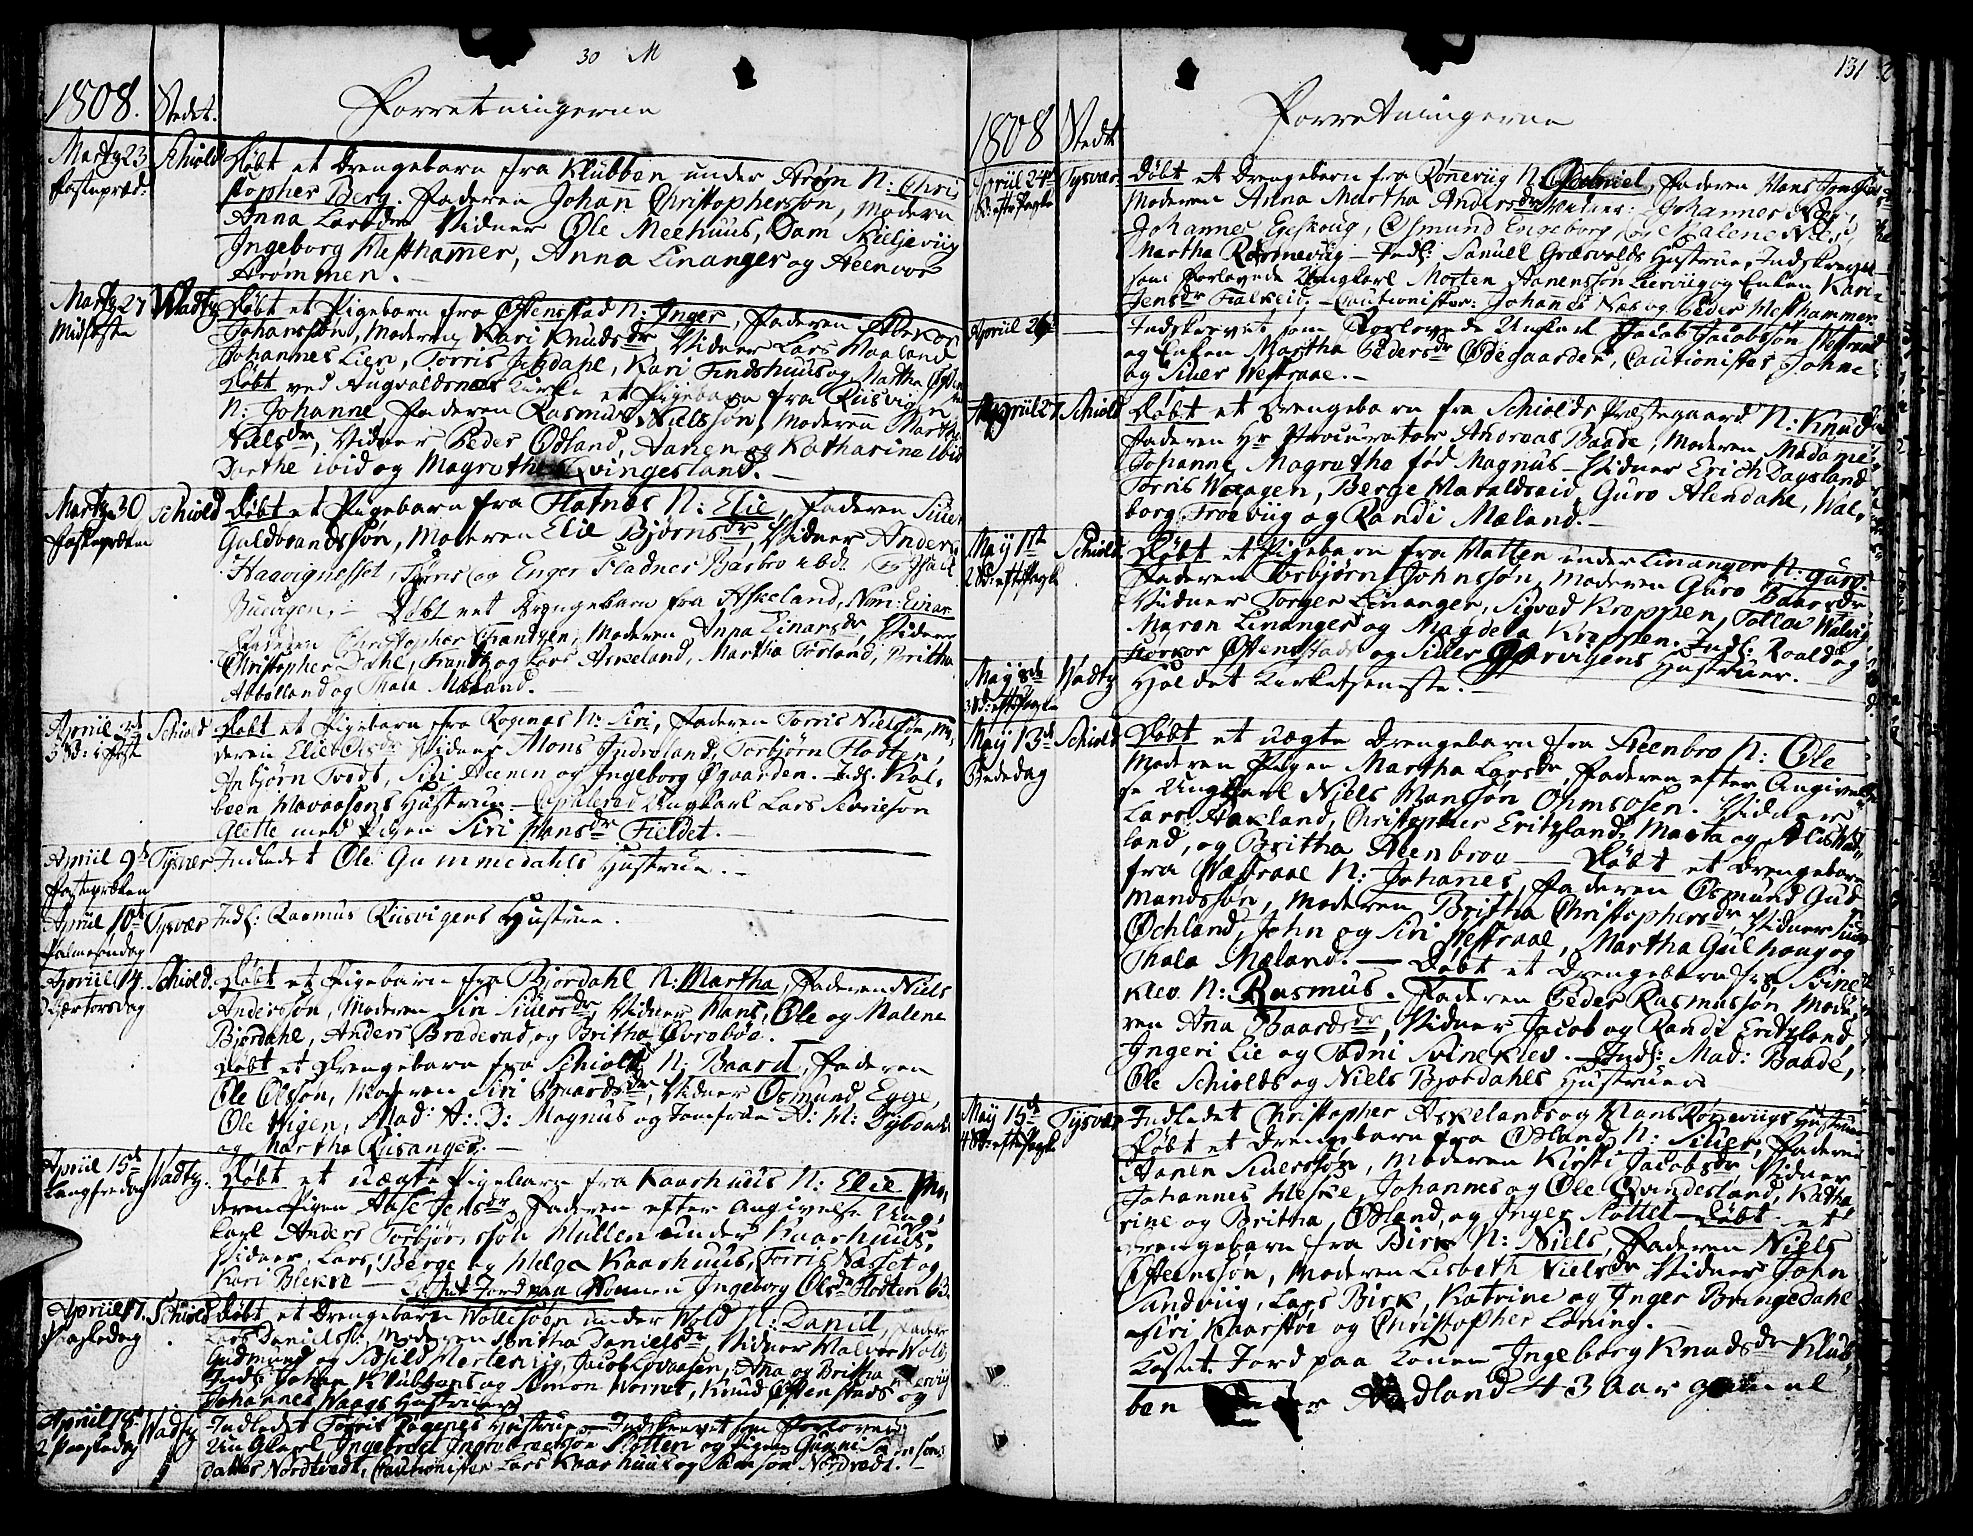 30 M
1808. Stedt. Forretningerne
Marty 23 Schiold Døbt et Drengebarn fra Klubben under Arøn N: Chri
Fastepræd: stopher Berg. Faderen Johan Christophersøn, Modern
Anna Larsdr Vidner Ole Meehuus, Dam Skieljeviig
Ingeborg Westhamer, Anna Linanger og Steenvor
Arommen. –
Marty 27 Vadty Døbt et Pigebarn fra Østenstad N: Inger, Faderen
Midfaste Johansøn, Moderen Kari Knudsdr Vidner Lars Waaland
Johannes Lien, Torris Jekdahl, Kari Findshuus og Martha
Døbt ved Augvaldsnæs Kirke et Pigebarn fra Riisvigen
N: Johanne Faderen Rasmus Nielssøn, Moderen Martha
Nielsdr, Vidner Peder Ødland, Aanen og Katharine ibid
Dorthe ibid og Magrethe Qvingesland. –
Marty 30 Schiold Døbt et Pigebarn fra Flatnæs N: Elie, Faderen Siuer
Fastepræken Guldbrandssøn, Moderen Elie Bjørnsdr, Vidner Anders
Haavignesset, Torris og Enger Fladnes Barbro ibd:
Buevigen, – Døbt eet Drengebarn fra Askeland, Nom: Einar
Faderen Christopher Frandzen, Moderen Anna Einarsdr, Vidner
Christopher Dahl, Frantz og Lars Askeland, Martha Førland, Britha
Abbelland og Thala Mæland. –
Apriil 3de Schiold Døbt et Pigebarn fra Rognnæs N: Siri, Faderen Torris Nielssøn, Mo,
5 Sd: i Faste deren Elie Olsdr Vidner Mons Indreland, Torbjørn Flotten,
Anbjørn Tvedt, Siri Aeenen og Ingeborg Øgaarden. Indl: Kol,
been Havaasens Hustrue – Copulered Ungkarl Lars Sevriesøn
Glette med Pigen Siri Hansdr Fieldet. –
Apriil 9de Tysvær Indledet Ole Gummedahls Hustrue. –
Fastepræken
Apriil 10de Tysvær Indl: Rasmus Riisvigens Hustrue.
Palmesøndag
Apriil 14. Schiold. Døbt et Pigebarn fra Bjordahl N: Martha, Faderen Niels
Skjærtorsdag Anderssøn, Moderen Siri Siuersdr, Vidner Hans, Ole og Malene
Bjordahl, Anders Braderad og Britha Øvrebøe.
Døbt et Drengebarn fra Schiold N: Baard, Faderen
Ole Olssøn, Moderen Siri Baardsdr, Vidner Osmund Egge,
Ole Wigen, Mad: A: D: Magnus og Jomfrue A: M: Dybou
og Martha Riisanger. –
Apriil 15de Vadty. Døbt et uægte Pigebarn fra Kaarhuus N: Elie Mo,
Langfredag deren Pigen Aase Jensdr, Faderen efter Angivelse Ung
karl Anders Torbjørnsøn Mullen under Kaarhuus,
Vidner Lars, Berge og Helga Kaarhuus, Torris Næset og
Kari Blekn – Castet Jord paa Konen Ingeborg Olsdr Flotten 63.
Apriil 17. Schiold Døbt et Drengebarn Wollesøen under Wold N: Daniel, Fader
Paaskedag Lars Danielss: Moderen Britha Danielsdr Vidner Halvor Wold,
Gudmund og Sissild Mertevig, Jacob Lovaasen, Ana og Britha
Indl: Johan Klubbens og Simon Wornes, Knud Østenstads og
Johannes Waags Hustruer
Apriil 18. Vadty Indledet Torris Høgenes Hustrue – Indskrevet som Forlovede
2 Paaskedag Ungkarl, Ingebrect Ingebrectsøn Slotten og Pigen Gunni Simonsøns
datter Nordtvedt, Cautionister Lars Kaarhuus og Simon Nordvedt. –
131
1808 Stedt Forretningerne
Apriil 24de Tysvær. Døbt et Drengebarn fra Røneviig N: Ommel, Faderen Hans
1 Sd: efter Paaske Moderen Anna Martha Andersdr Vidner: Johannes Næs,
Johannes Egeskoug, Osmund Engeborg og Malene
Martha Rønneviig – Indl: Samuel Græsvolds Hustrue, Indskrevet
som Forlovede Ungkarl Morten Aanenssøn Lierviig og Enken Kari
Jensdr Falkeid – Cautionister: Johannes Næs og Peder Westhammer
Apriil 26de Indskrevet som Forlovede Ungkarl Jacob Jacobssøn Westraae
og Enken Martha Pedersdr Ødegaarden, Cautionister Johne
og Siuer Westraae. –
Apriil 27 Schiold Døbt et Drengebarn fra Schiolds Præstegaard N: Knud
Faderen Hr Procurator Andreas Baade, Moderen Madame
Johanne Magrethe fød Magnus – Vidner Erich Dagsland
Torris Waagen, Berge Haraldseid, Guro Alendahl, Wal,
borg Troeviig og Randi Mæland. –
May 1ste Schiold Døbt et Pigebarn fra Hatten under Linanger N: Guro
2 Sd: efter Paaske Faderen Torbjørn Johnssøn, Moderen Guro Baarsdr
Vidner Torger Linanger, Sigvod Kroppen, Tollov Walvig,
Maren Linanger og Magdela Kroppen. Indl: Roald og
Haavor Østenstads og Siuer Qvarvigens Hustruer.
May 8de Vadty Holdet Kirketjeneste. –
3 Sd: efter Paaske
May 13de Schiold Døbt et uægte Drengebarn fra Steenbro N: Ole
Bededag Moderen Pigen Martha Larsdr, Faderen efter Angivel
se Ungkarl Niels Hanssøn Ohmsosen. Vidner
Lars Askland, Christopher Eritzland, Marta og Alis Wad
land, og Britha Steenbrov – Døbt et Drengebarn
fra Westraae N: Johanes, Faderen Osmund Gud
mandssøn, Moderen Britha Christophersdr, Vidner Siuer
Øchland, John og Siri Westraae, Martha Gulhaug og
Thala Mæland. – Døbt et Drengebarn fra Svine
klev N: Rasmus. Faderen Peder Rasmussøn Mode,
ren Ana Baardsdr, Vidner Jacob og Randi Eritzland,
Ingeri Lie og Todni Svineklev. – Indl: Mad: Baade,
Ole Schiolds og Niels Bjordahls Hustruer
May 15de Tysvær Indledet Christopher Askelands og Hans Røneviigs Hustruer
4 Sd: efter Paaske Døbt et Drengebarn fra Ødland N: Siuer, Faderen
Aanen Siuerssøn, Moderen Kirsti Jacobsdr, Vidner
Johannes Heske, Johannes og Ole Qvindesland, Katha
rine og Britha, Ødland, og Inger Slottet – Døbt et
Drengebarn fra Birk N: Niels, Faderen Niels
Østenssøn, Moderen Lisbeth Nielsdr Vidner John
Sandviig, Lars Birk, Katrine og Inger Bringedahl
Siri Kaarstøe og Christopher Løning. –
Castet Jord paa Konen Ingeborg Knudsdr Klub,
ben Aadland 43 aar gamel